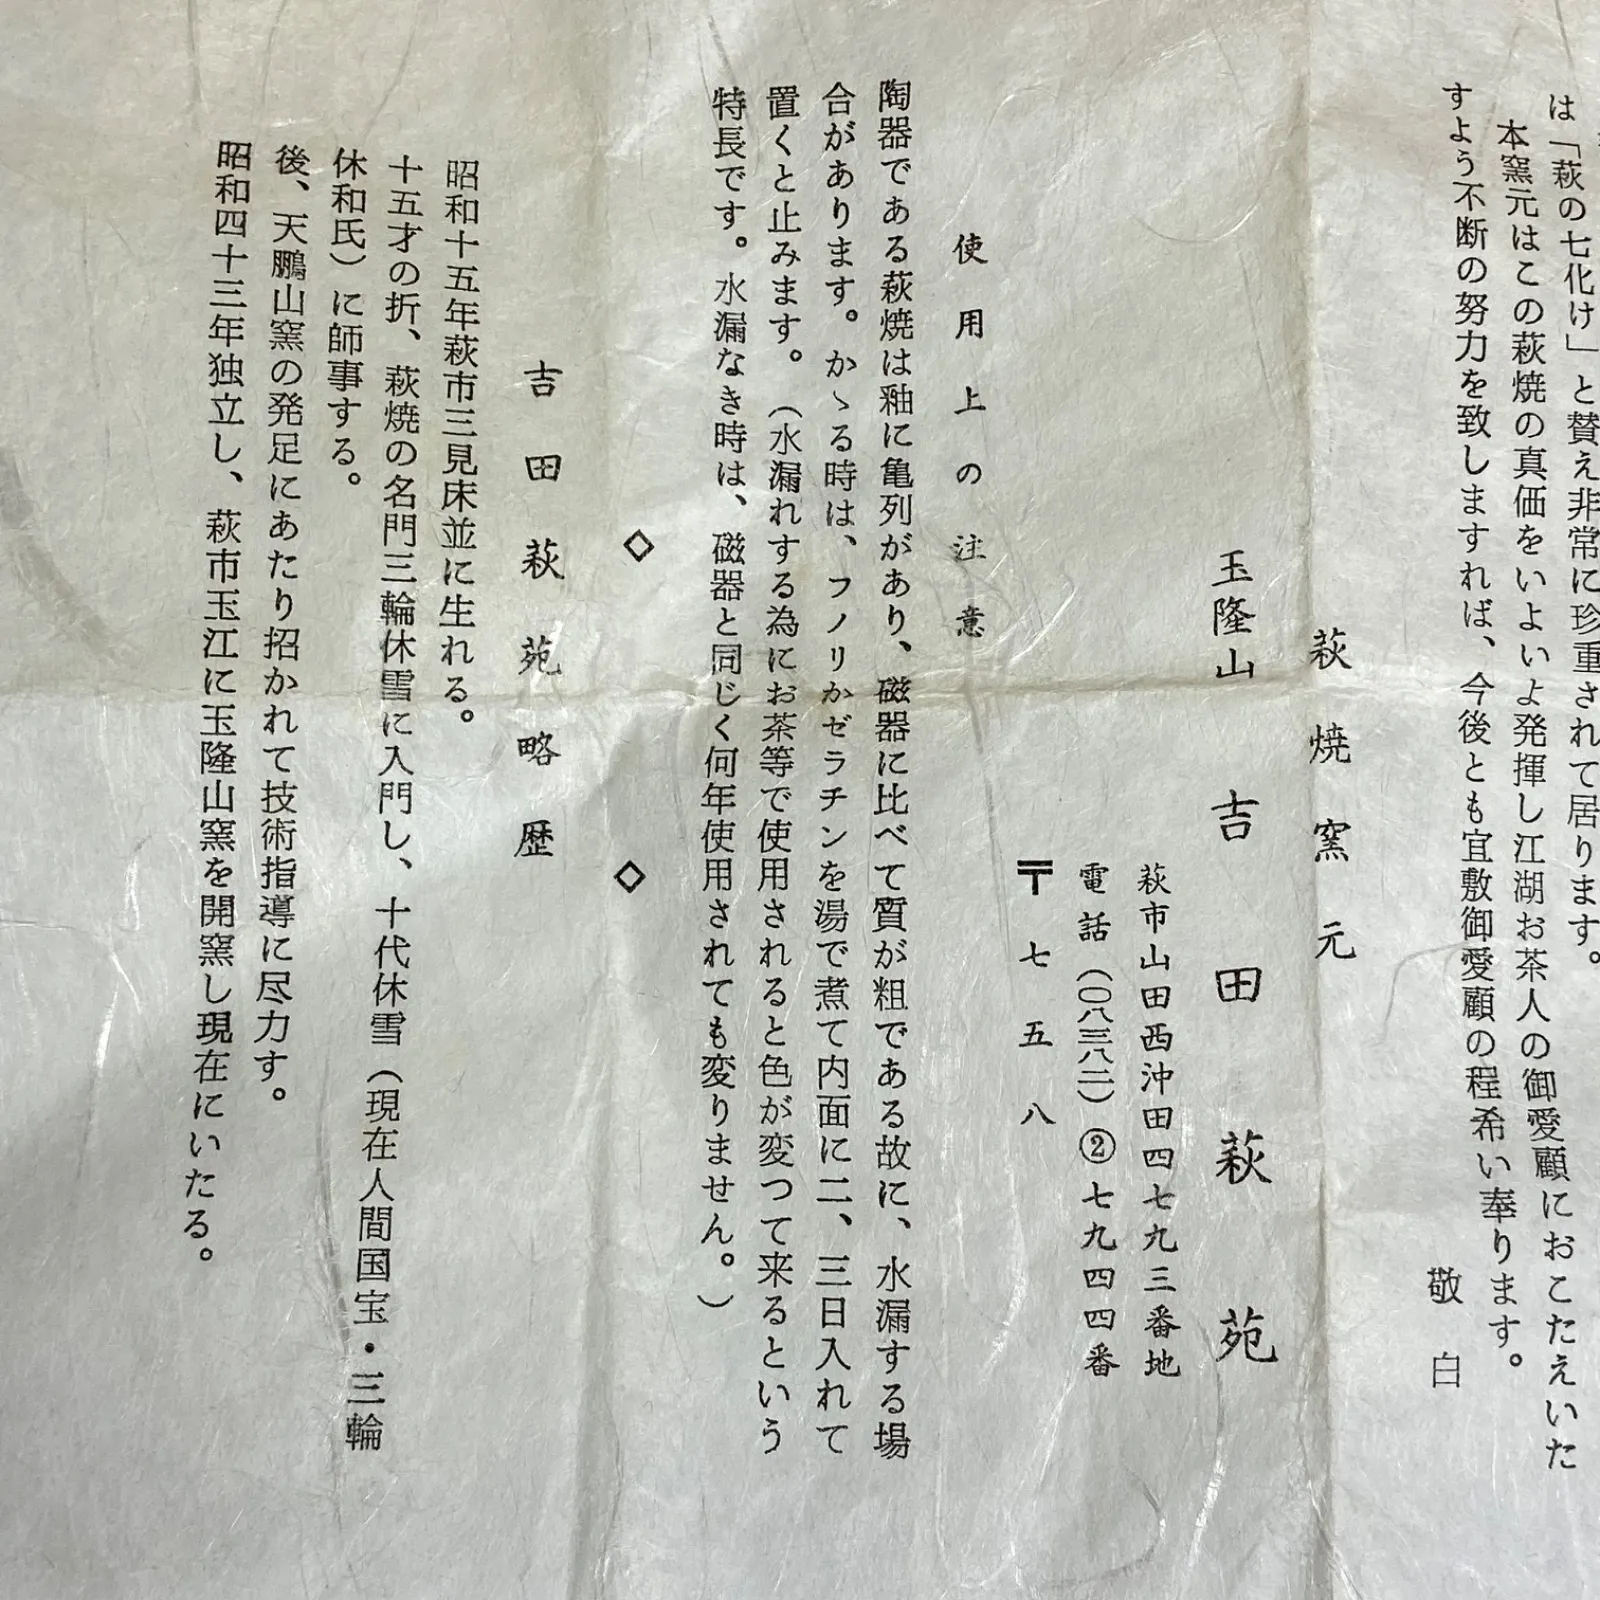 は「萩の七化け」と賛え非常に珍重されて居ります。
本窯元はこの萩焼の真価をいよいよ発揮し江湖お茶人の御愛顧におこたえいた
すよう不断の努力を致しますれば、今後とも宜敷御愛顧の程希い奉ります。
敬白
萩焼窯元
玉隆山 吉田萩苑
萩市山田西沖田四七九三番地
電話(〇八三八二)②七九四四番
〒七五八
使用上の注意
陶器である萩焼は釉に亀列があり、磁器に比べて質が粗である故に、水漏する場
合があります。かゝる時は、フノリかゼラチンを湯で煮て内面に二、三日入れて
置くと止みます。(水漏れする為にお茶等で使用されると色が変つて来るという
特長です。水漏なき時は、磁器と同じく何年使用されても変りません。)
◇ ◇
吉田萩苑略歴
昭和十五年萩市三見床並に生れる。
十五才の折、萩焼の名門三輪休雪に入門し、十代休雪(現在人間国宝・三輪
休和氏)に師事する。
後、天鵬山窯の発足にあたり招かれて技術指導に尽力す。
昭和四十三年独立し、萩市玉江に玉隆山窯を開窯し現在にいたる。